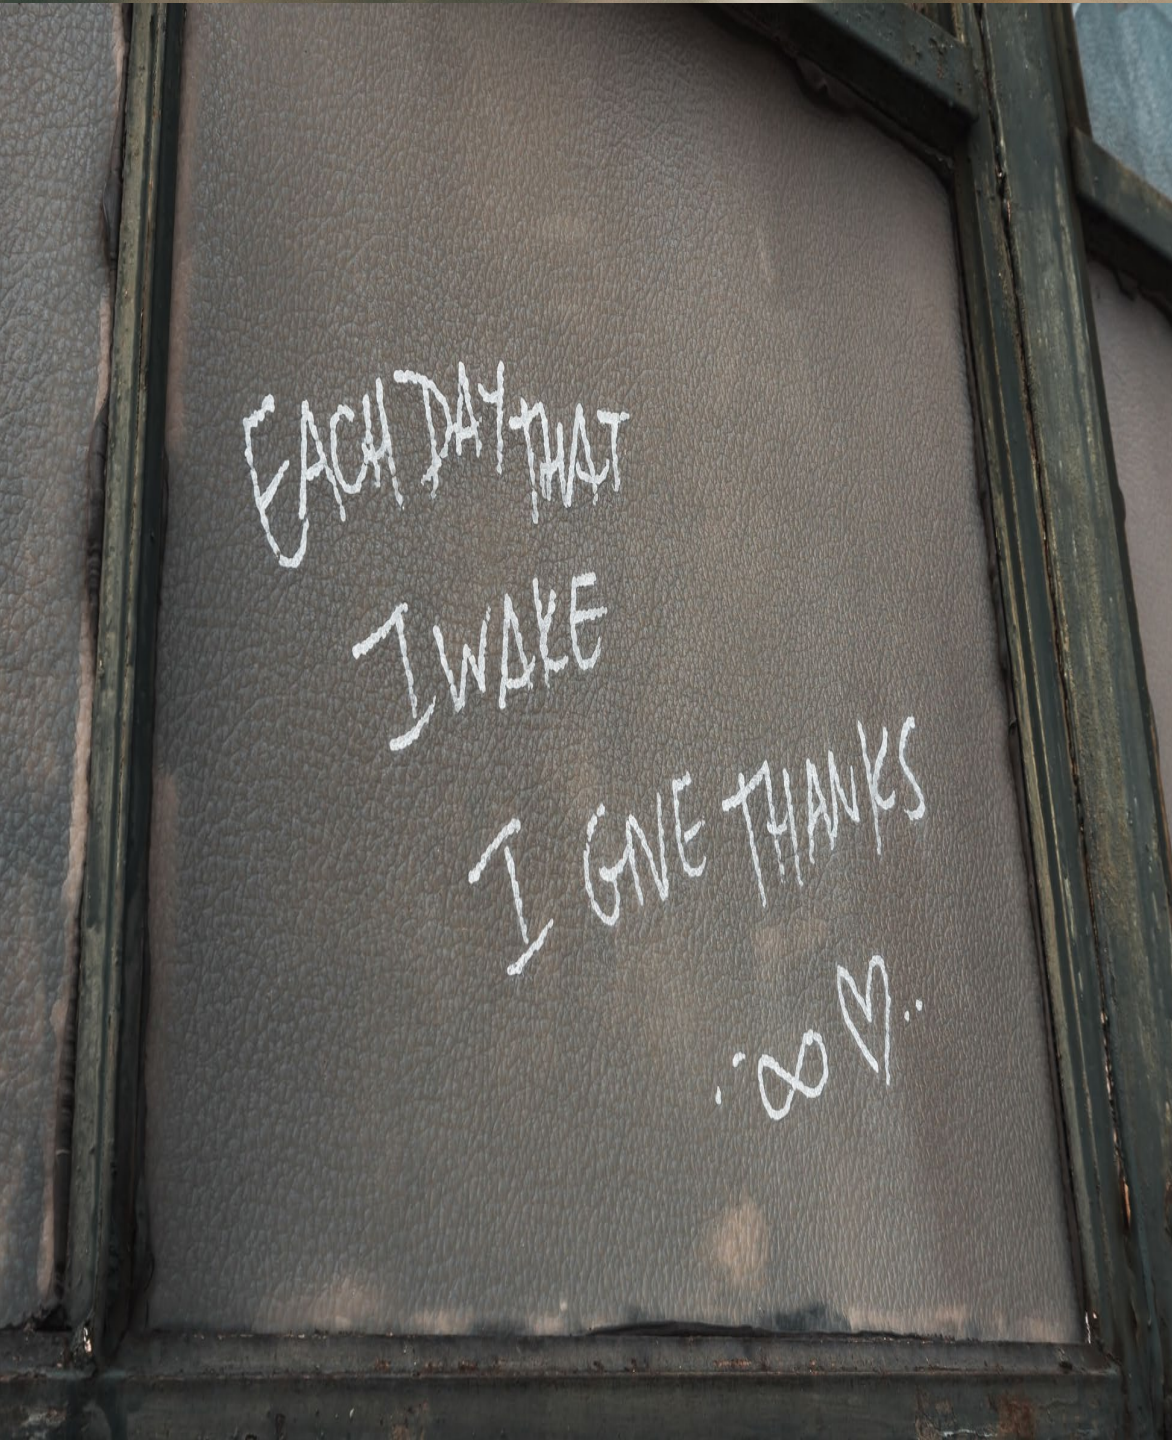 EACH DAY THAT
I WAKE
I GIVE THANKS
∞ ♡..